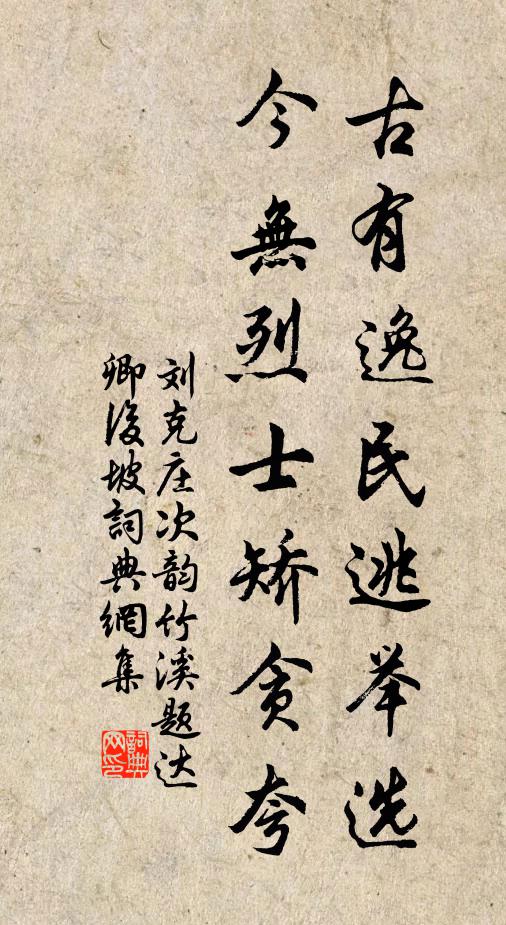 古有逸民逃举选
今無烈士矫贪夸
刘克庄次韵竹溪题达
卿後坡詞典網集
詞典网印